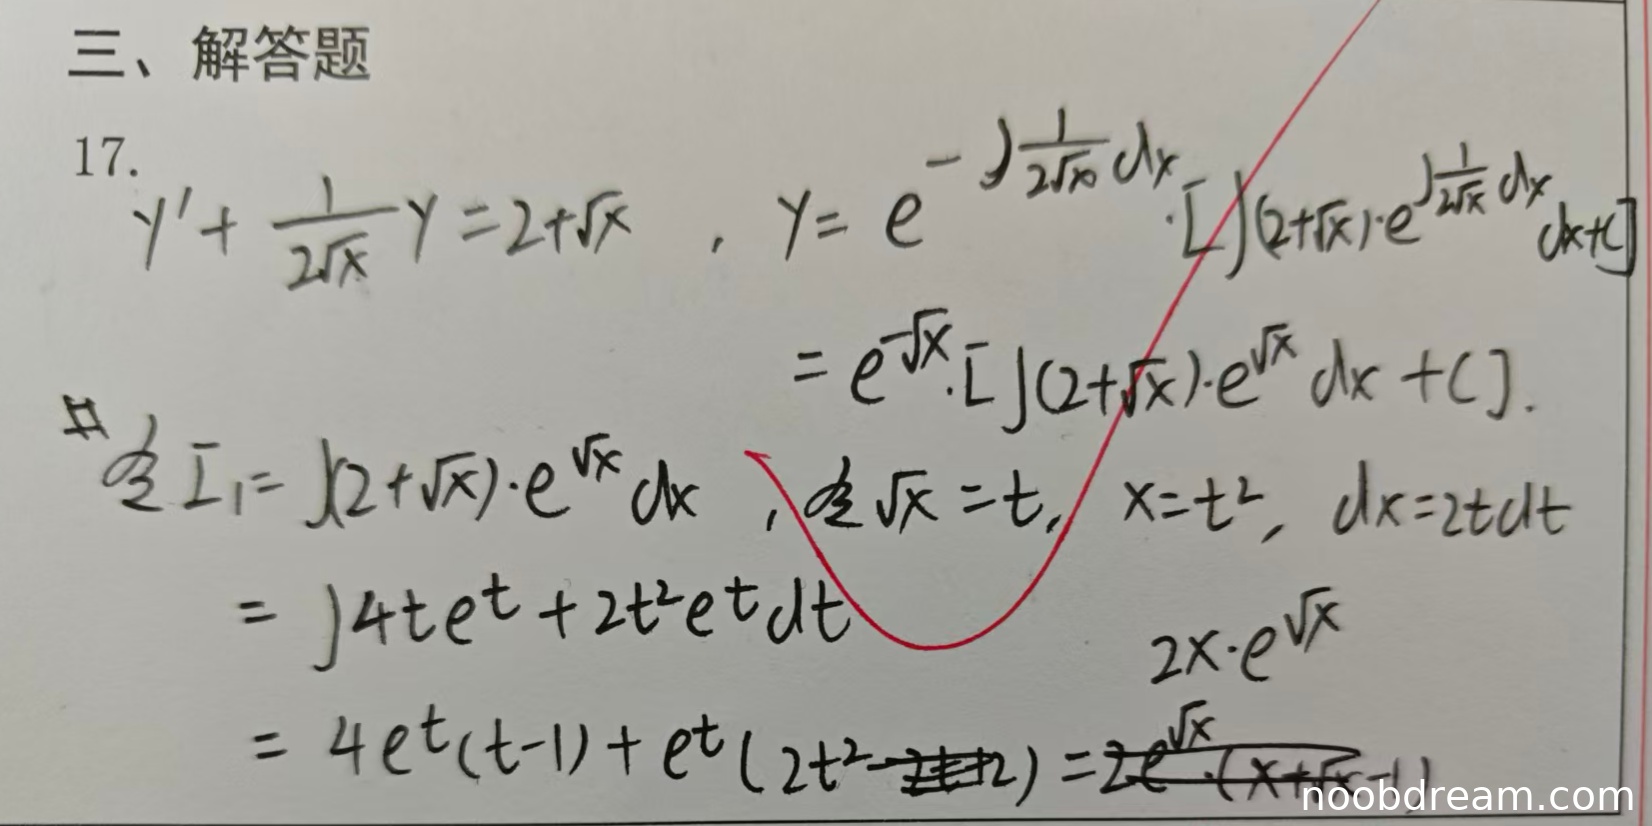 三、解答题
17.
y' + \frac{1}{2\sqrt{x}} y = 2+\sqrt{x} , y = e^{-\int \frac{1}{2\sqrt{x}} dx} · [∫(2+\sqrt{x})·e^{\int \frac{1}{2\sqrt{x}} dx} dx+C]
= e^{-\sqrt{x}} · [∫(2+\sqrt{x})·e^{\sqrt{x}} dx + C].
令 I₁ = ∫(2+\sqrt{x})·e^{\sqrt{x}} dx , 令 \sqrt{x} = t, x=t², dx=2tdt
= ∫4te^t + 2t²e^t dt
2x·e^{\sqrt{x}}
= 4e^t(t-1) + e^t(2t²
noobdream.com